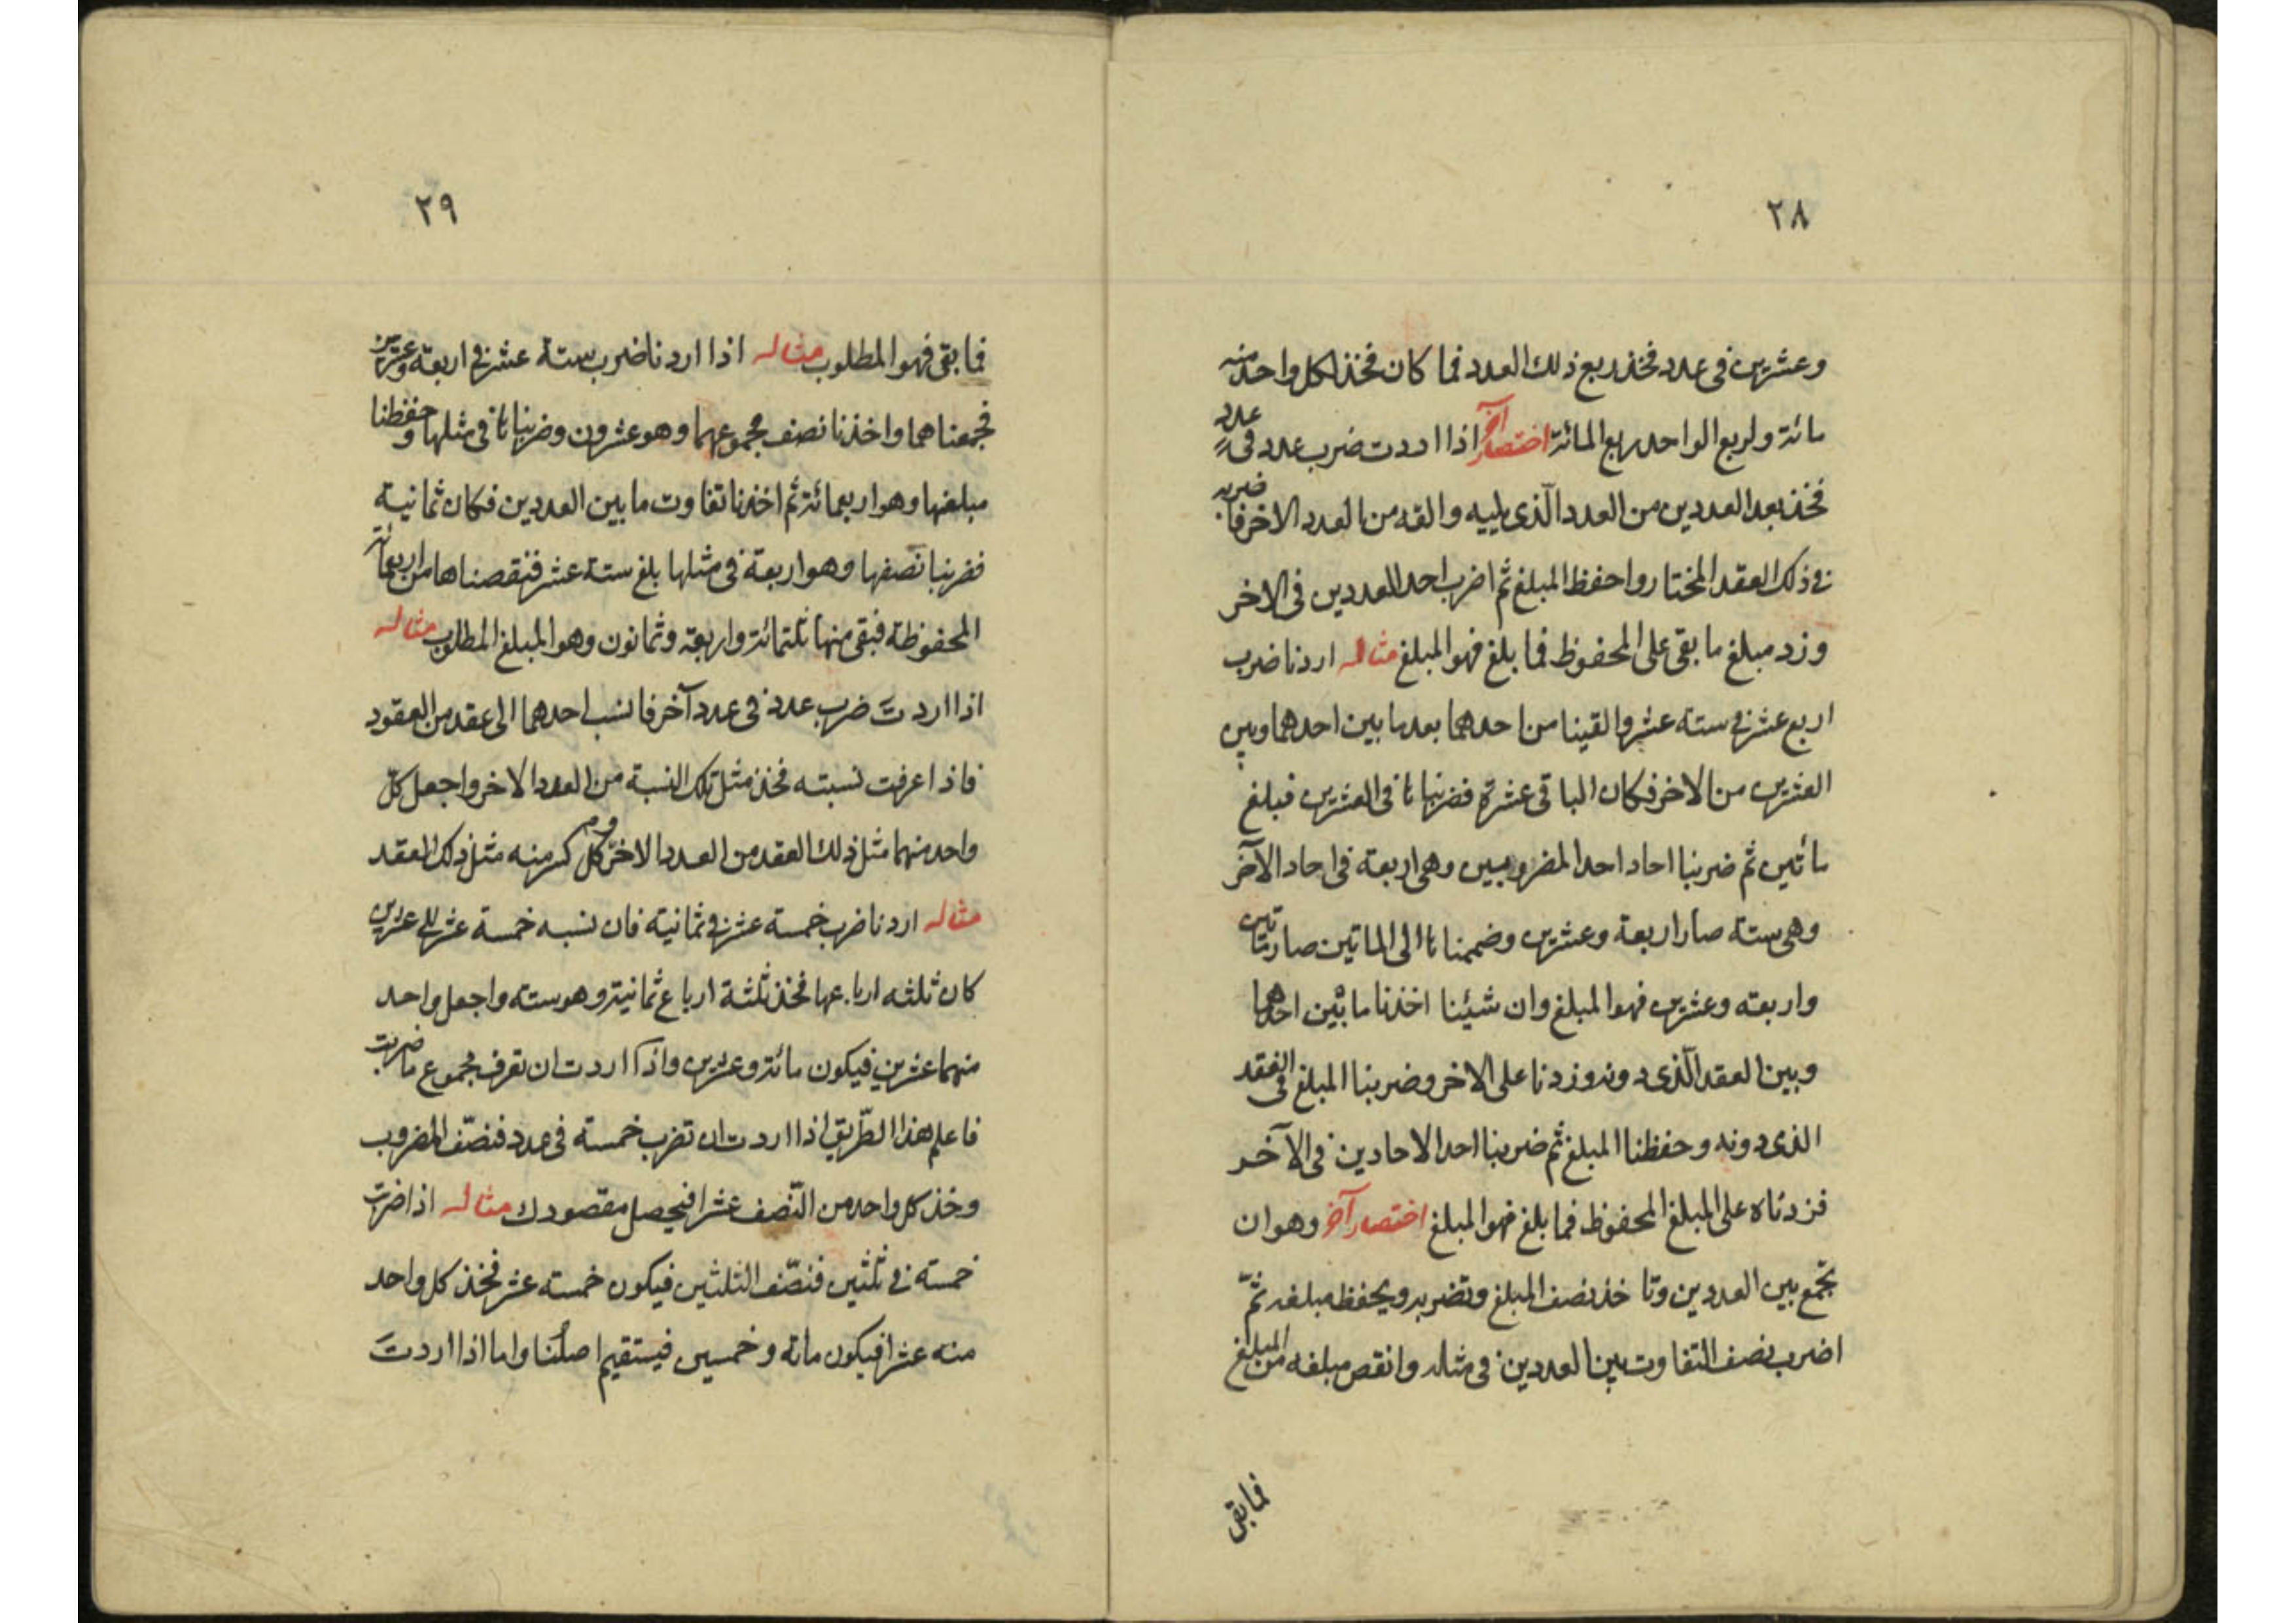 ٢٨
وعشرين فى عدد فخذ ربع ذلك العدد فما كان فخذ لكل واحد منه
مائة ولربع الواحد ربع المائة اختصار آخر اذا اردت ضرب عدد فى عدد
فخذ بعد العددين من العدد الّذى يليه والقه من العدد الاخر فما ضربه
فى ذلك العقد المختار واحفظ المبلغ ثم اضرب احد العددين فى الاخر
وزد مبلغ ما بقى على المحفوظ فما بلغ فهو المبلغ مثاله اردنا ضرب
اربع عشر فى ستة عشر والقينا من احدهما بعد ما بين احدهما وبين
العشرين من الاخر فكان الباقى عشرة فضربناها فى العشرين فبلغ
مائتين ثم ضربنا احاد احد المضروبين وهى اربعة فى احاد الآخر
وهى ستة صار اربعة وعشرين وضممناها الى الماتين صار مائتين
واربعه وعشرين فهو المبلغ وان شيئنا اخذنا ما بين احدهما
وبين العقد الّذى دونه وزدنا على الاخر وضربنا المبلغ فى العقد
الذى دونه وحفظنا المبلغ ثم ضربنا احد الاحادين فى الآخر
فزدناه على المبلغ المحفوظ فما بلغ فهو المبلغ اختصار آخر وهو ان
تجمع بين العددين وتاخذ نصف المبلغ وتضربه ويحفظ مبلغه ثمّ
اضرب نصف التفاوت بين العددين فى مثاله وانقص مبلغه من المبلغ
فما بقى
٢٩
فما بقى فهو المطلوب مثاله اذا اردنا ضرب ستة عشر فى اربعة وعشرين
فجمعناهما واخذنا نصف مجموعهما وهو عشرون وضربناها فى مثلها وحفظنا
مبلغها وهو اربعمائة ثم اخذنا تفاوت ما بين العددين فكان ثمانية
فضربنا نصفها وهو اربعة فى مثلها بلغ ستة عشر فنقصناها من اربعمائة
المحفوظة فبقى منها ثلثمائة واربعة وثمانون وهو المبلغ المطلوب مثاله
اذا اردتَ ضرب عدد فى عدد آخر فانسب احدهما الى عقد من العقود
فاذا عرفت نسبته فخذ مثل تلك النسبة من العدد الاخر واجعل كلّ
واحد منهما مثل ذلك العقد من العدد الاخر وكل كسر منه مثل ذلك العقد
مثاله اردنا ضرب خمسة عشر فى ثمانية فان نسبه خمسة عشر الى عشرين
كان ثلثه ارباعها فخذ ثلثة ارباع ثمانية وهو سته واجعل واحد
منهما عشرين فيكون مائة وعشرين واذا اردت ان تعرف مجموع ما ضربت
فاعلم هذا الطّريق اذا اردت ان تضرب خمسة فى عدد فنصّف المضروب
وخذ كل واحد من النّصف عشرا فيحصل مقصودك مثاله اذا ضربت
خمسة فى ثلثين فنصّف الثلثين فيكون خمسة عشر فخذ كل واحد
منه عشرا فيكون ماىة وخمسين فيستقيم اصلُنا واما اذا اردتَ